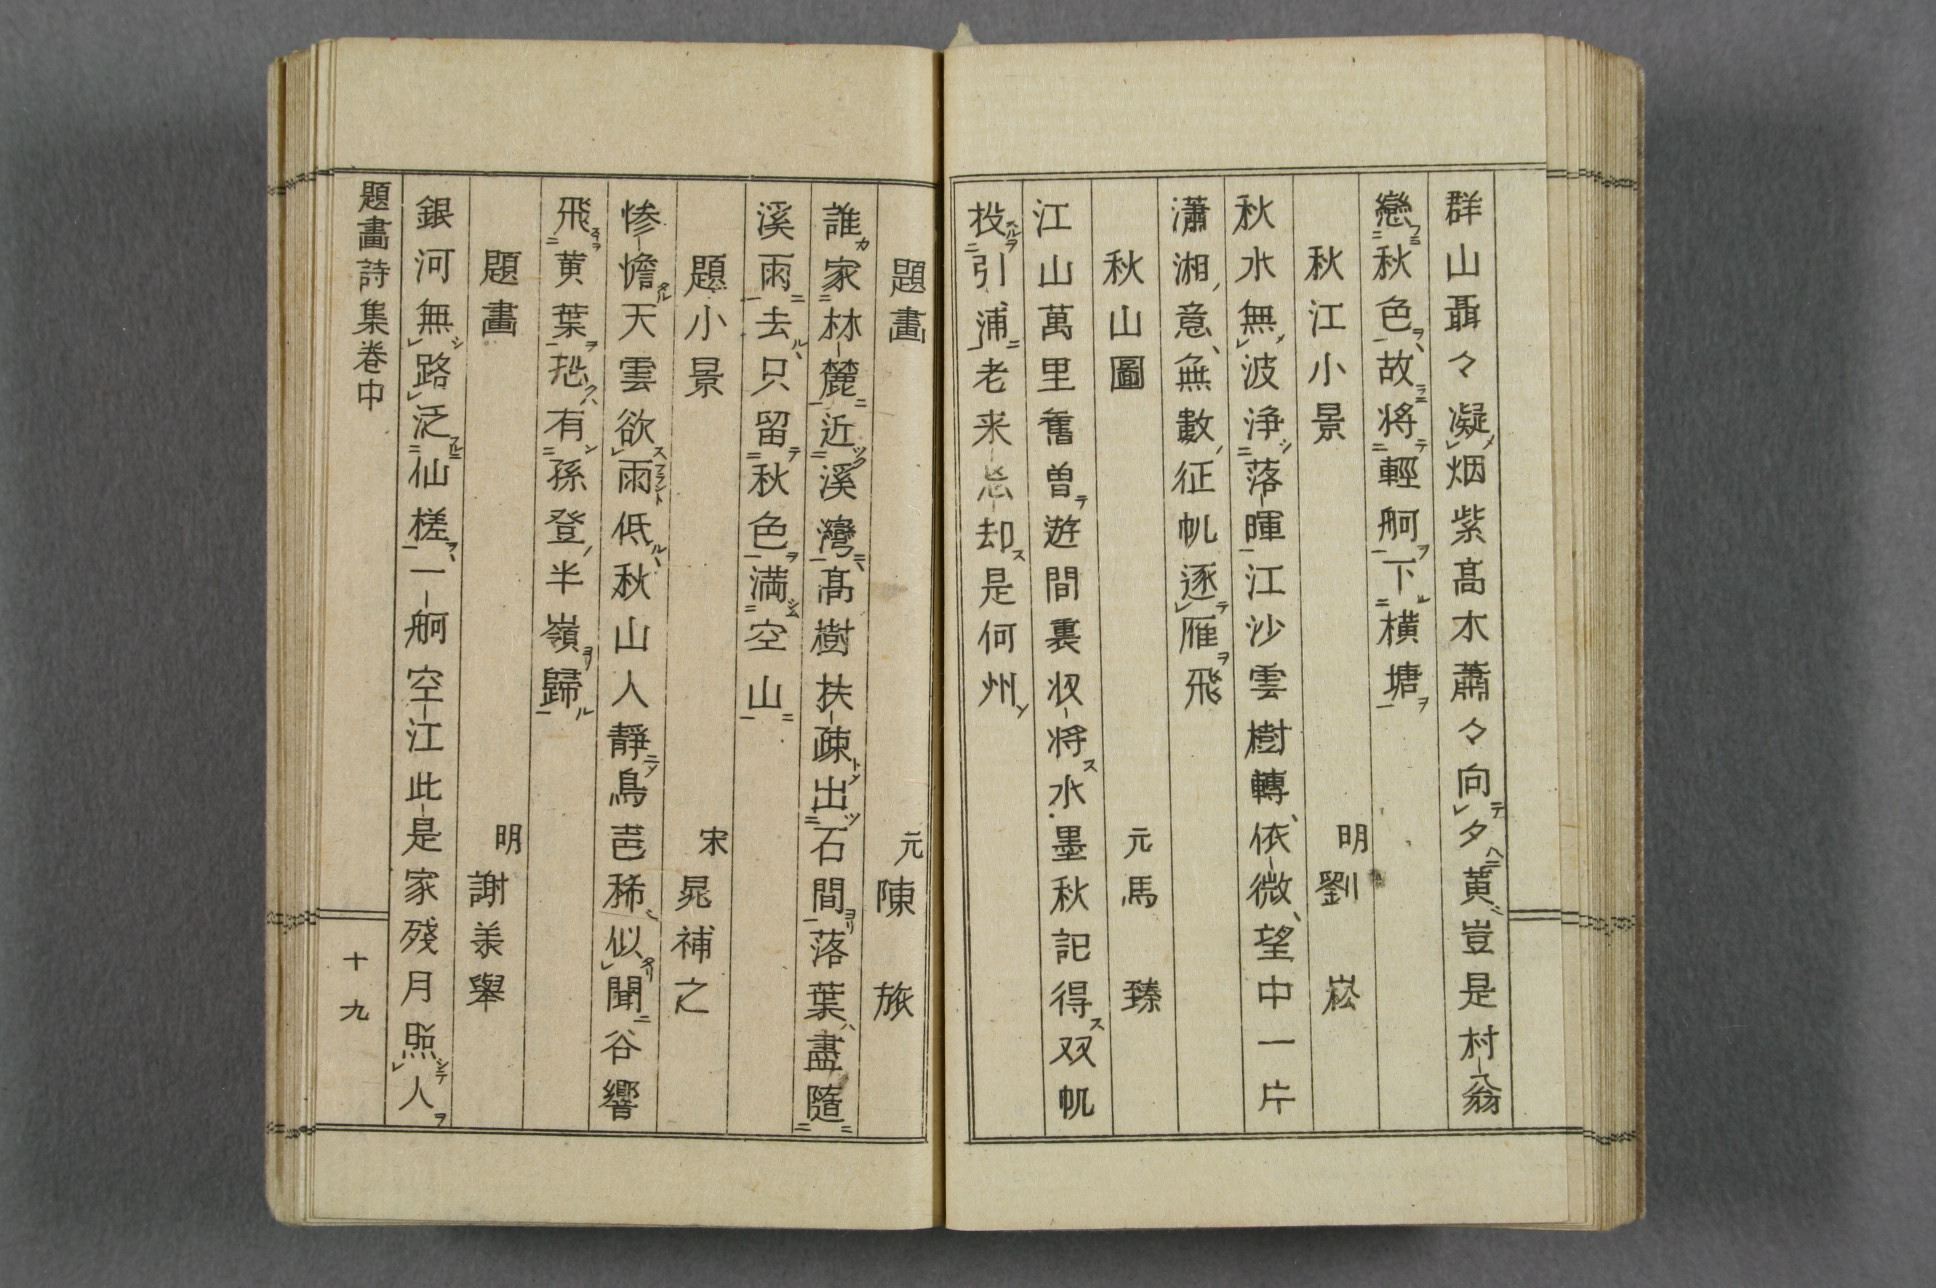 群山聶々凝烟紫高木蕭々向夕黄豈是村翁
戀秋色故将輕舸下横塘
秋江小景　明劉　崧
秋水無波浄落暉江沙雲樹轉依微望中一片
瀟湘意無數征帆逐雁飛
秋山圖　元馬　臻
江山萬里舊曽遊間裏收将水墨秋記得双帆
投引浦老来忘却是何州
題畫　元陳　旅
誰家林麓近溪灣高樹扶疎出石間落葉盡隨
溪雨去只留秋色満空山
題小景　宋晁補之
惨憺天雲欲雨低秋山人靜鳥声稀似聞谷響
飛黄葉恐有孫登半嶺歸
題畫　明謝羕舉
銀河無路泛仙槎一舸空江此是家殘月照人
題畫詩集巻中　十九